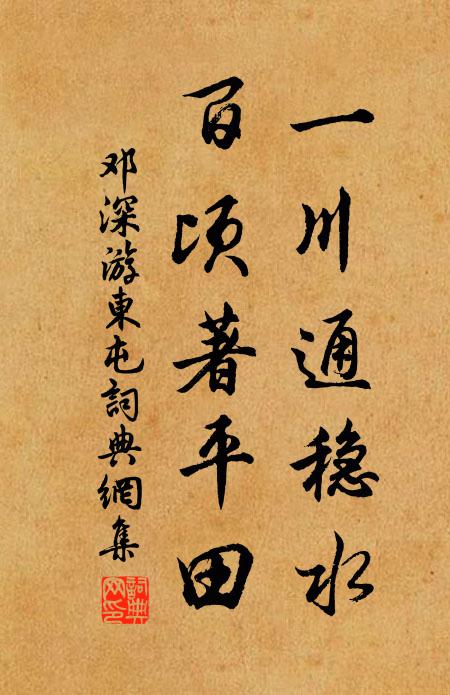 一川通稳水
百顷著平田
邓深游東屯詞典網集
詞典网印